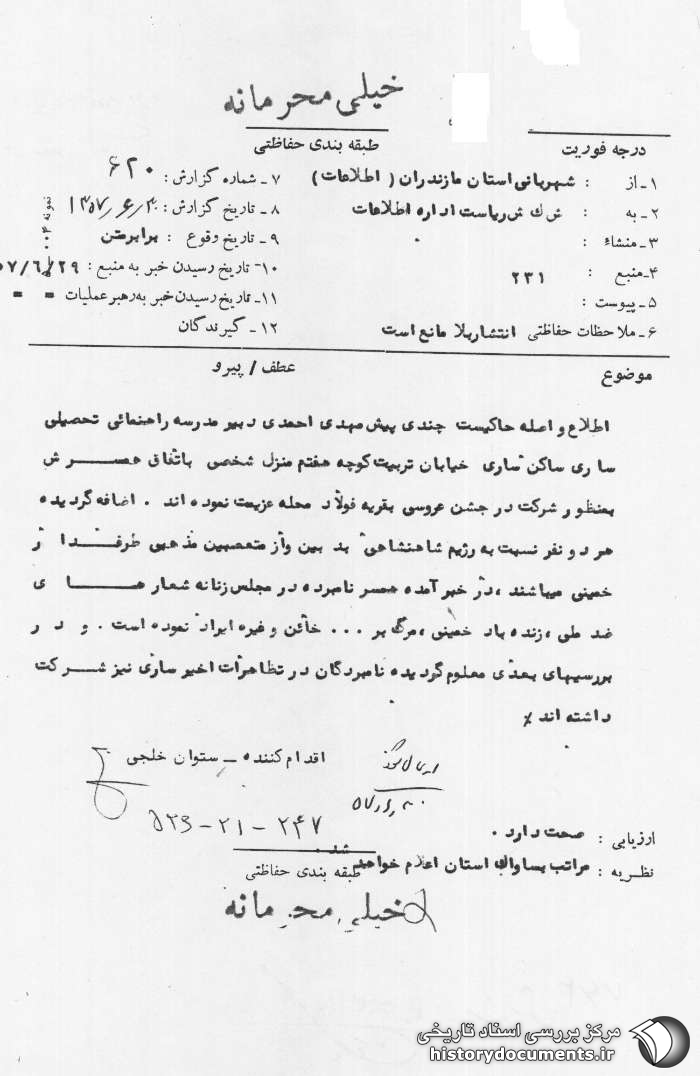 خیلی محرمانه
طبقه بندی حفاظتی
درجه فوریت
۱ـ از : شهربانی استان مازندران ( اطلاعات )
۲ـ به : ش ك ش ریاست اداره اطلاعات
۳ـ منشاء :
۴ـ منبع : ۲۳۱
۵ ـ پیوست :
۶ ـ ملاحظات حفاظتی انتشار بلا مانع است
۷ ـ شماره گزارش : ۶۲۰
۸ ـ تاریخ گزارش : ۱۳۵۷/۶/۳۰
۹ ـ تاریخ وقوع : برابر متن
۱۰ ـ تاریخ رسیدن خبر به منبع : ۵۷/۶/۲۹
۱۱ ـ تاریخ رسیدن خبر به رهبر عملیات = =
۱۲ ـ گیرندگان
نمونه
موضوع
عطف / پیرو
اطلاع واصله حاکیست چندی پیش مهدی احمدی دبیر مدرسه راهنمائی تحصیلی
ساری ساکن ساری خیابان تربیت کوچه هفتم منزل شخصی باتفاق همسرش
بمنظور شرکت در جشن عروسی بقریه فولاد محله عزیمت نموده اند . اضافه گردیده
هر دو نفر نسبت به رژیم شاهنشاهی بد بین واز متعصبین مذهبی طرفدار
خمینی میباشند ، در خبر آمده همسر نامبرده در مجلس زنانه شعار های
ضد ملی ، زنده باد خمینی ، مرگ بر ... خائن و غیره ایراد نموده است . و در
بررسیهای بعدی معلوم گردیده نامبردگان در تظاهرات اخیر ساری نیز شرکت
داشته اند ٪
اقدام کننده ـ ستوان خلجی
۵۲۶ - ۲۱ - ۲۴۷
ارزیابی : صحت دارد .
نظریه : مراتب بساواك استان اعلام خواهد شد .
طبقه بندی حفاظتی
خیلی محرمانه
مرکز بررسی اسناد تاریخی
historydocuments.ir